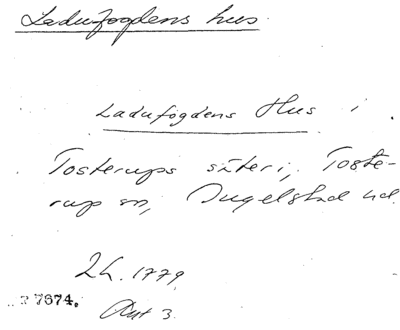 Ladufogdens hus.
Ladufogdens Hus i
Tosterups säteri, Toste-
rup sn, Ingelstad hd.
Lh. 1779
7674.
Ant 3.